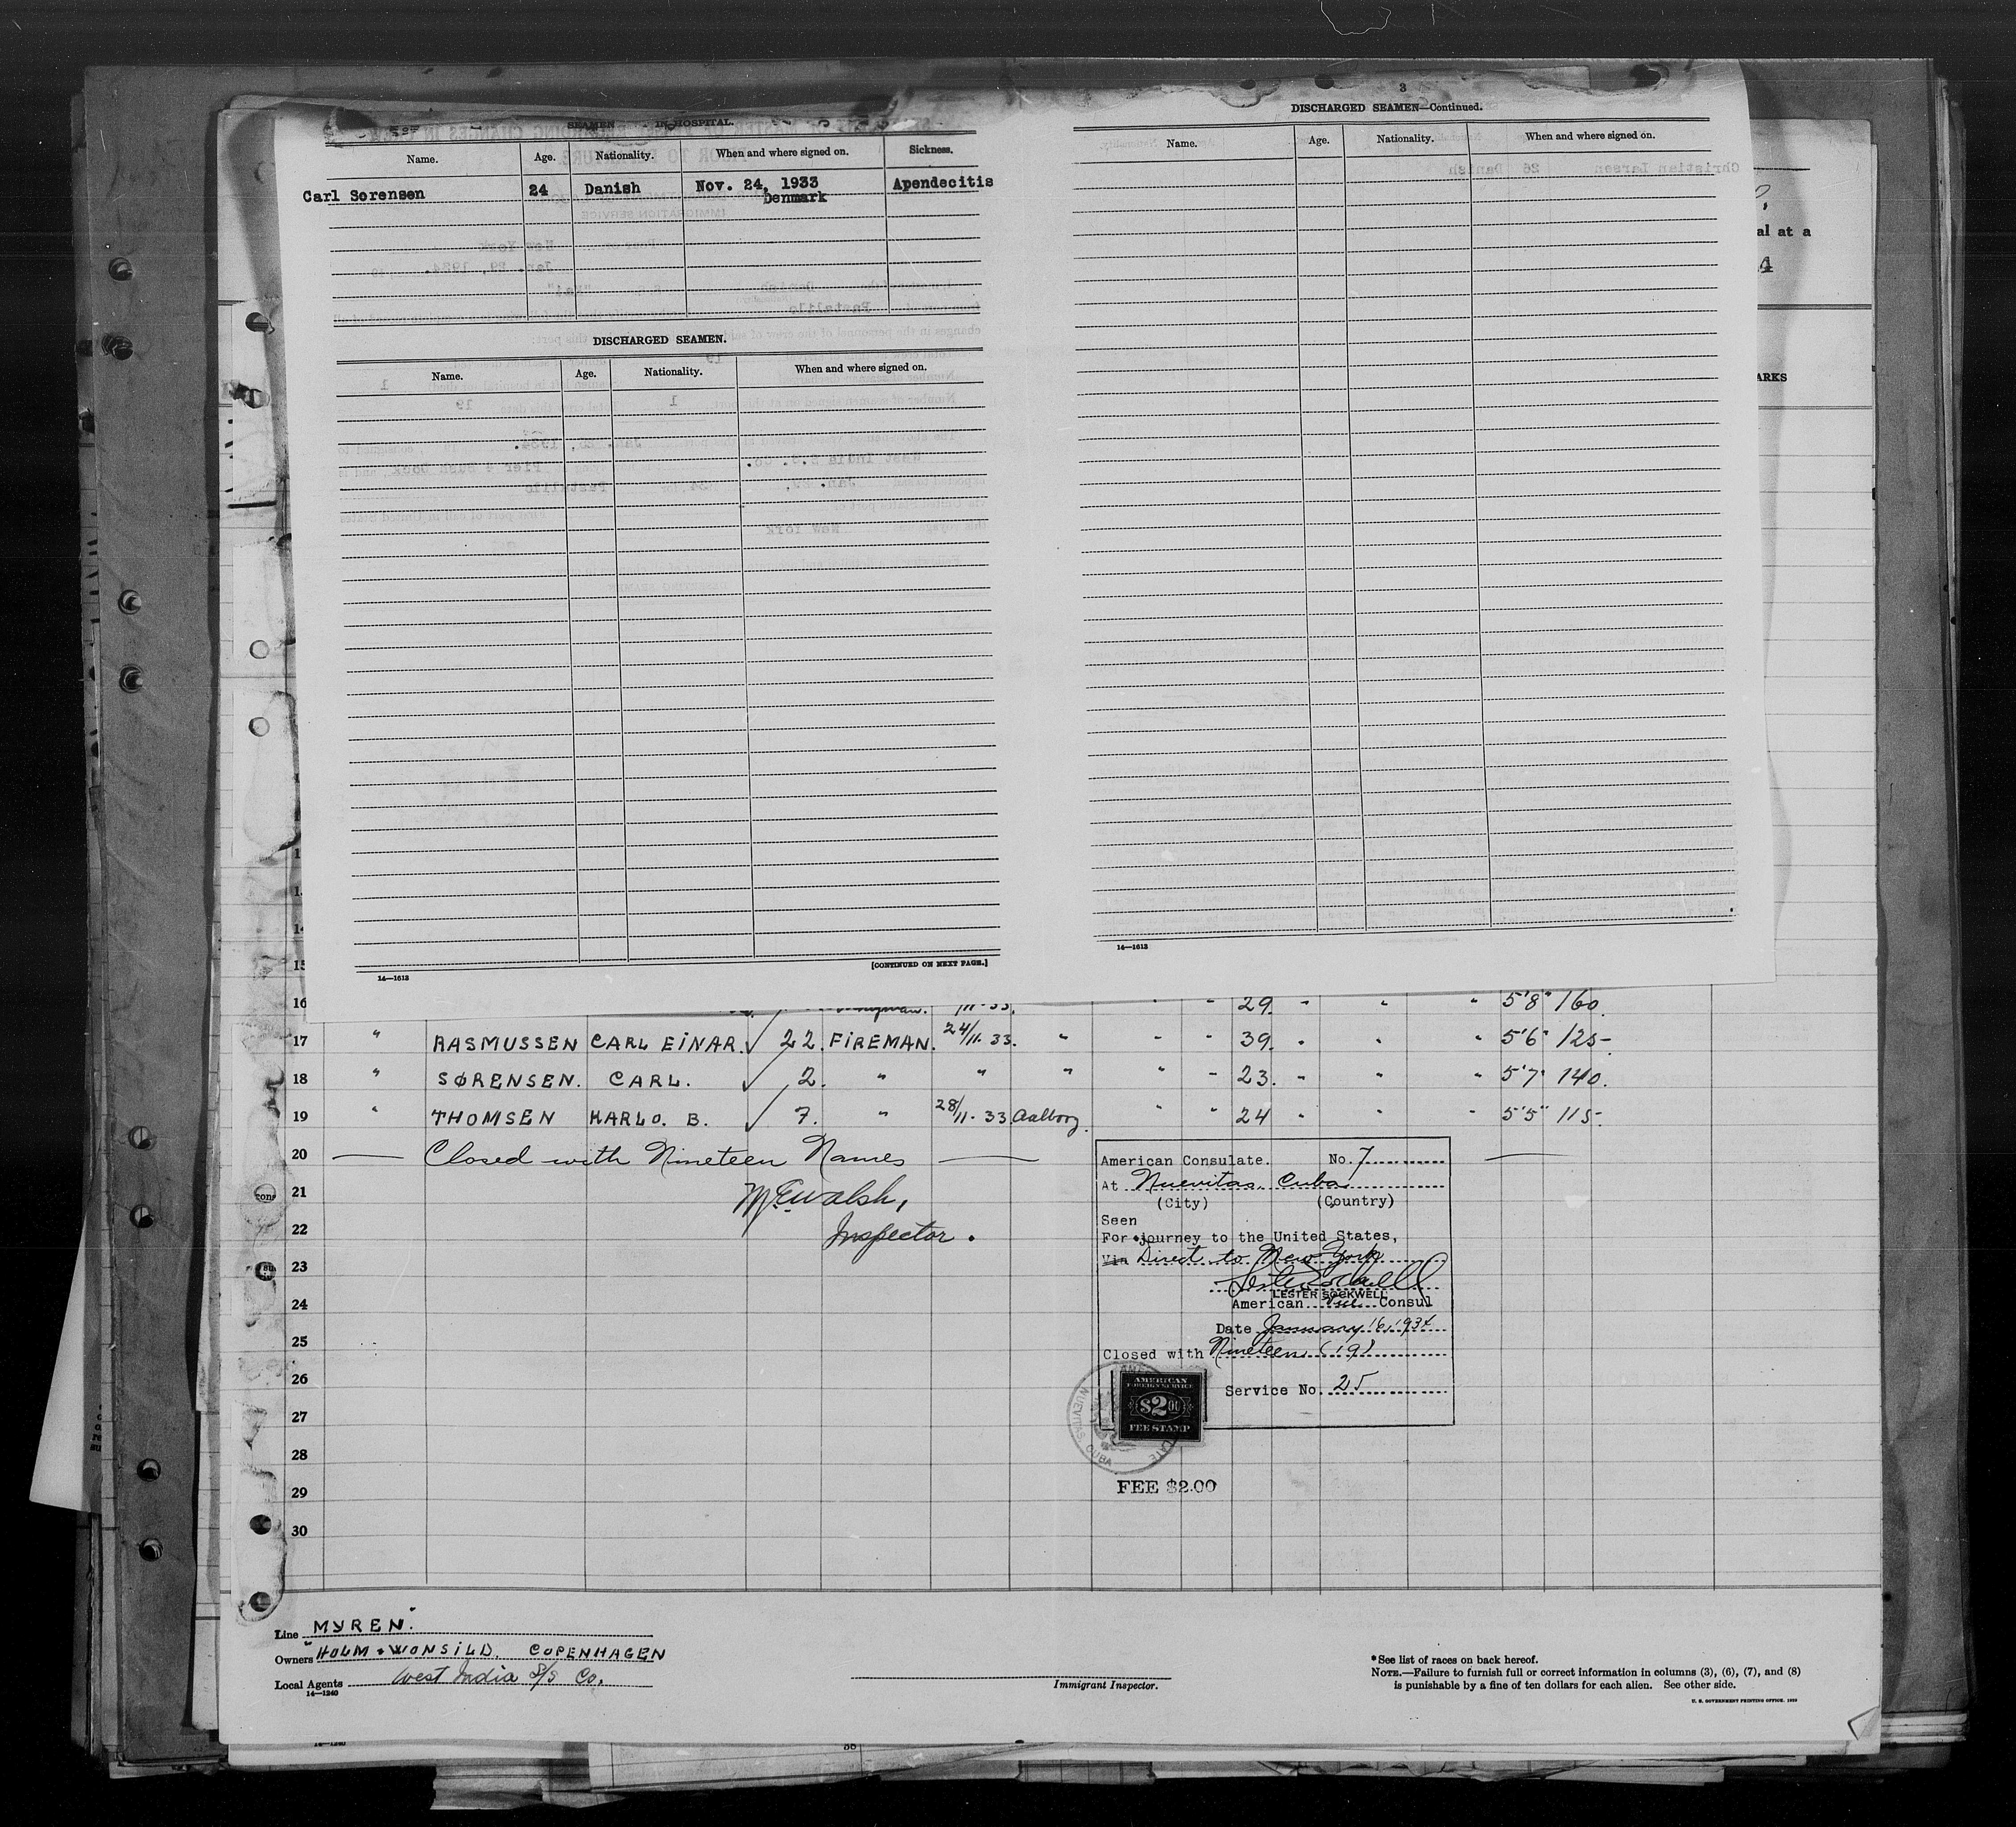 SEAMEN IN HOSPITAL.
Name. Age. Nationality. When and where signed on. Sickness.
Carl Sorensen 24 Danish Nov. 24, 1933 Apendecitis
Denmark
DISCHARGED SEAMEN.
Name. Age. Nationality. When and where signed on.
14—1613
[CONTINUED ON NEXT PAGE.]
3
DISCHARGED SEAMEN—Continued.
Name. Age. Nationality. When and where signed on.
14—1613
al at a
ARKS
15
16 11-33. " " 29. " " " 5'8" 160.
17 " RASMUSSEN CARL EINAR. ✓ 22. FIREMAN. 24/11-33. " " " 39. " " " 5'6" 125-
18 " SØRENSEN. CARL. ✓ 2. " " " " " 23. " " " 5'7" 140.
19 " THOMSEN KARLO. B. ✓ 7. " 28/11-33 Aalborg. " " 24 " " " 5'5" 115-
20 — Closed with Nineteen Names —
21
Inspector.
22
23
24
25
26
27
28
29
30
American Consulate. No. 7
At Nuevitas, Cuba
(City) (Country)
Seen
For journey to the United States,
Via Direct to New York
LESTER SOCKWELL
American Vice Consul
Date January 16, 1934
Closed with Nineteen (19)
Service No. 25
AMERICAN
FOREIGN SERVICE
$2.00
FEE STAMP
NUEVITAS CUBA
FEE $2.00
Line "MYREN."
Owners "HOLM & WONSILD. COPENHAGEN
Local Agents West India S/S Co.
14—1240
Immigrant Inspector.
*See list of races on back hereof.
NOTE.—Failure to furnish full or correct information in columns (3), (6), (7), and (8)
is punishable by a fine of ten dollars for each alien. See other side.
U. S. GOVERNMENT PRINTING OFFICE.
14—1240